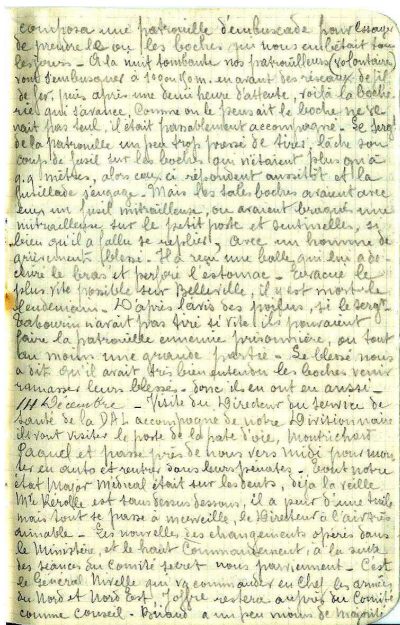 composa une patrouille d'embuscade pour essayer
de prendre le ou les boches qui nous embêtait tous
les jours _ A la nuit tombante nos patrouilleurs (volontaires)
vont s'embusquer à 100 ou 150 m. en avant des réseaux de fil
de fer, puis après une demi heure d'attente, voilà la boche
rie qui s'avance, comme on le pensait le boche ne ve
nait pas seul, il était passablement accompagné _ Le Sergt
de la patrouille un peu trop pressé de tirer, lâche son
coup de fusil sur les boches qui n'étaient plus qu'à
q.q mètres, alors ceux ci répondent aussitôt et la
fusillade s'engage. Mais les sales boches avaient avec
eux un fusil mitrailleuse, ou avaient braqué une
mitrailleuse sur le petit poste et sentinelles, si
bien qu'il a fallu se replier, avec un homme de
grièvement blessé _ Il a reçu une balle qui lui a dé
chiré le bras et perforé l'estomac _ Evacué le
plus vite possible sur Belleville, il y est mort le
lendemain _ D'après l'avis des poilus, si le sergt
Tabourin n'avait pas tiré si vite ils pouvaient
faire la patrouille ennemie prisonnière, ou tout
au moins une grande partie _ Le blessé nous
a dit qu'il avait très bien entendu les boches venir
ramasser leurs blessés _ donc il en ont eu aussi _
14 Décembre _ Visite du Directeur du Service de
santé de la DAL accompagné de notre Divisionnaire
ils vont visiter le poste de la pate d'oie, Montrichard
Pacquel et passe près de nous vers midi pour mon
ter en auto et rentrer dans leurs pénates _ Tout notre
état Mayor Médical était sur les dents, déjà la veille
Mr Kerolle est sans dessus dessous, il a peur d'une tuile
mais tout se passe à merveille, le Directeur à l'air très
aimable _ Les nouvelles des changements opérés dans
le Ministère, et le haut Commandement, à la suite
des séances du Comité secret nous parviennent _ C'est
le Général Nivelle qui va commander en Chef les armées
du Nord et Nord Est. Joffre restera auprès du Comité
comme conseil _ Briand a un peu moins de majorité